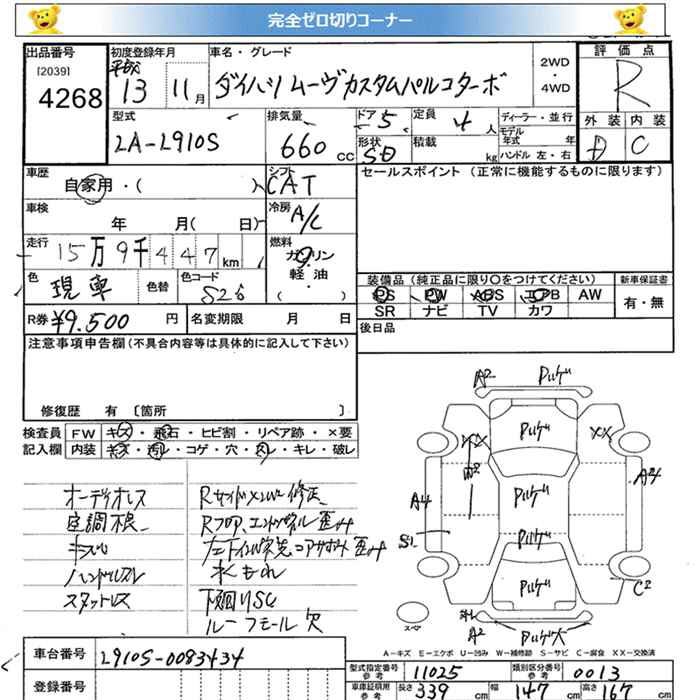 完全ゼロ切りコーナー
出品番号 初度登録年月 車名・グレード 評価点
[2039] 平成 2WD
4268 13 11月 ダイハツ ムーヴカスタムパルコターボ ・4WD R
型式 排気量 ドア 5 定員 4人 ディーラー・並行 外装 内装
LA-L910S 660cc 形状 SD 積載 kg モデル年式 年 D C
ハンドル 左・右
車歴 シフト セールスポイント (正常に機能するものに限ります)
自家用・( ) CAT
車検 冷房
年 月( 日) A/C
走行 燃料
15万9千447km ガソリン
軽・油
色 色替 色コード ・( ) 装備品 (純正品に限り○をつけてください) 新車保証書
現車 S26 PS PW ABS エアB AW 有・無
SR ナビ TV カワ
R券 ¥9.500円 名変期限 月 日 後日品
注意事項申告欄(不具合内容等は具体的に記入して下さい)
修復歴 有 〔箇所 〕
検査員 FW キズ・飛石・ヒビ割・リペア跡・×要
記入欄 内装 キズ・汚れ・コゲ・穴・スレ・キレ・破レ
オーディオレス
空調不良
キズ
ハンドルスレ
スタットレス
水もれ
下廻りSC
ルーフモール欠
A2 カルゲ
カルゲ
XX XX
W2
カルゲ
A4 A4
S1
カルゲ
C2
スペア
A2
A-キズ E-エクボ U-凹み W-補修跡 S-サビ C-腐食 XX-交換済
車台番号 L910S-0083434
登録番号
型式指定番号 参考 11025 類別区分番号 参考 0013
車庫証明用 参考 長さ 339cm 幅 147cm 高さ 167cm